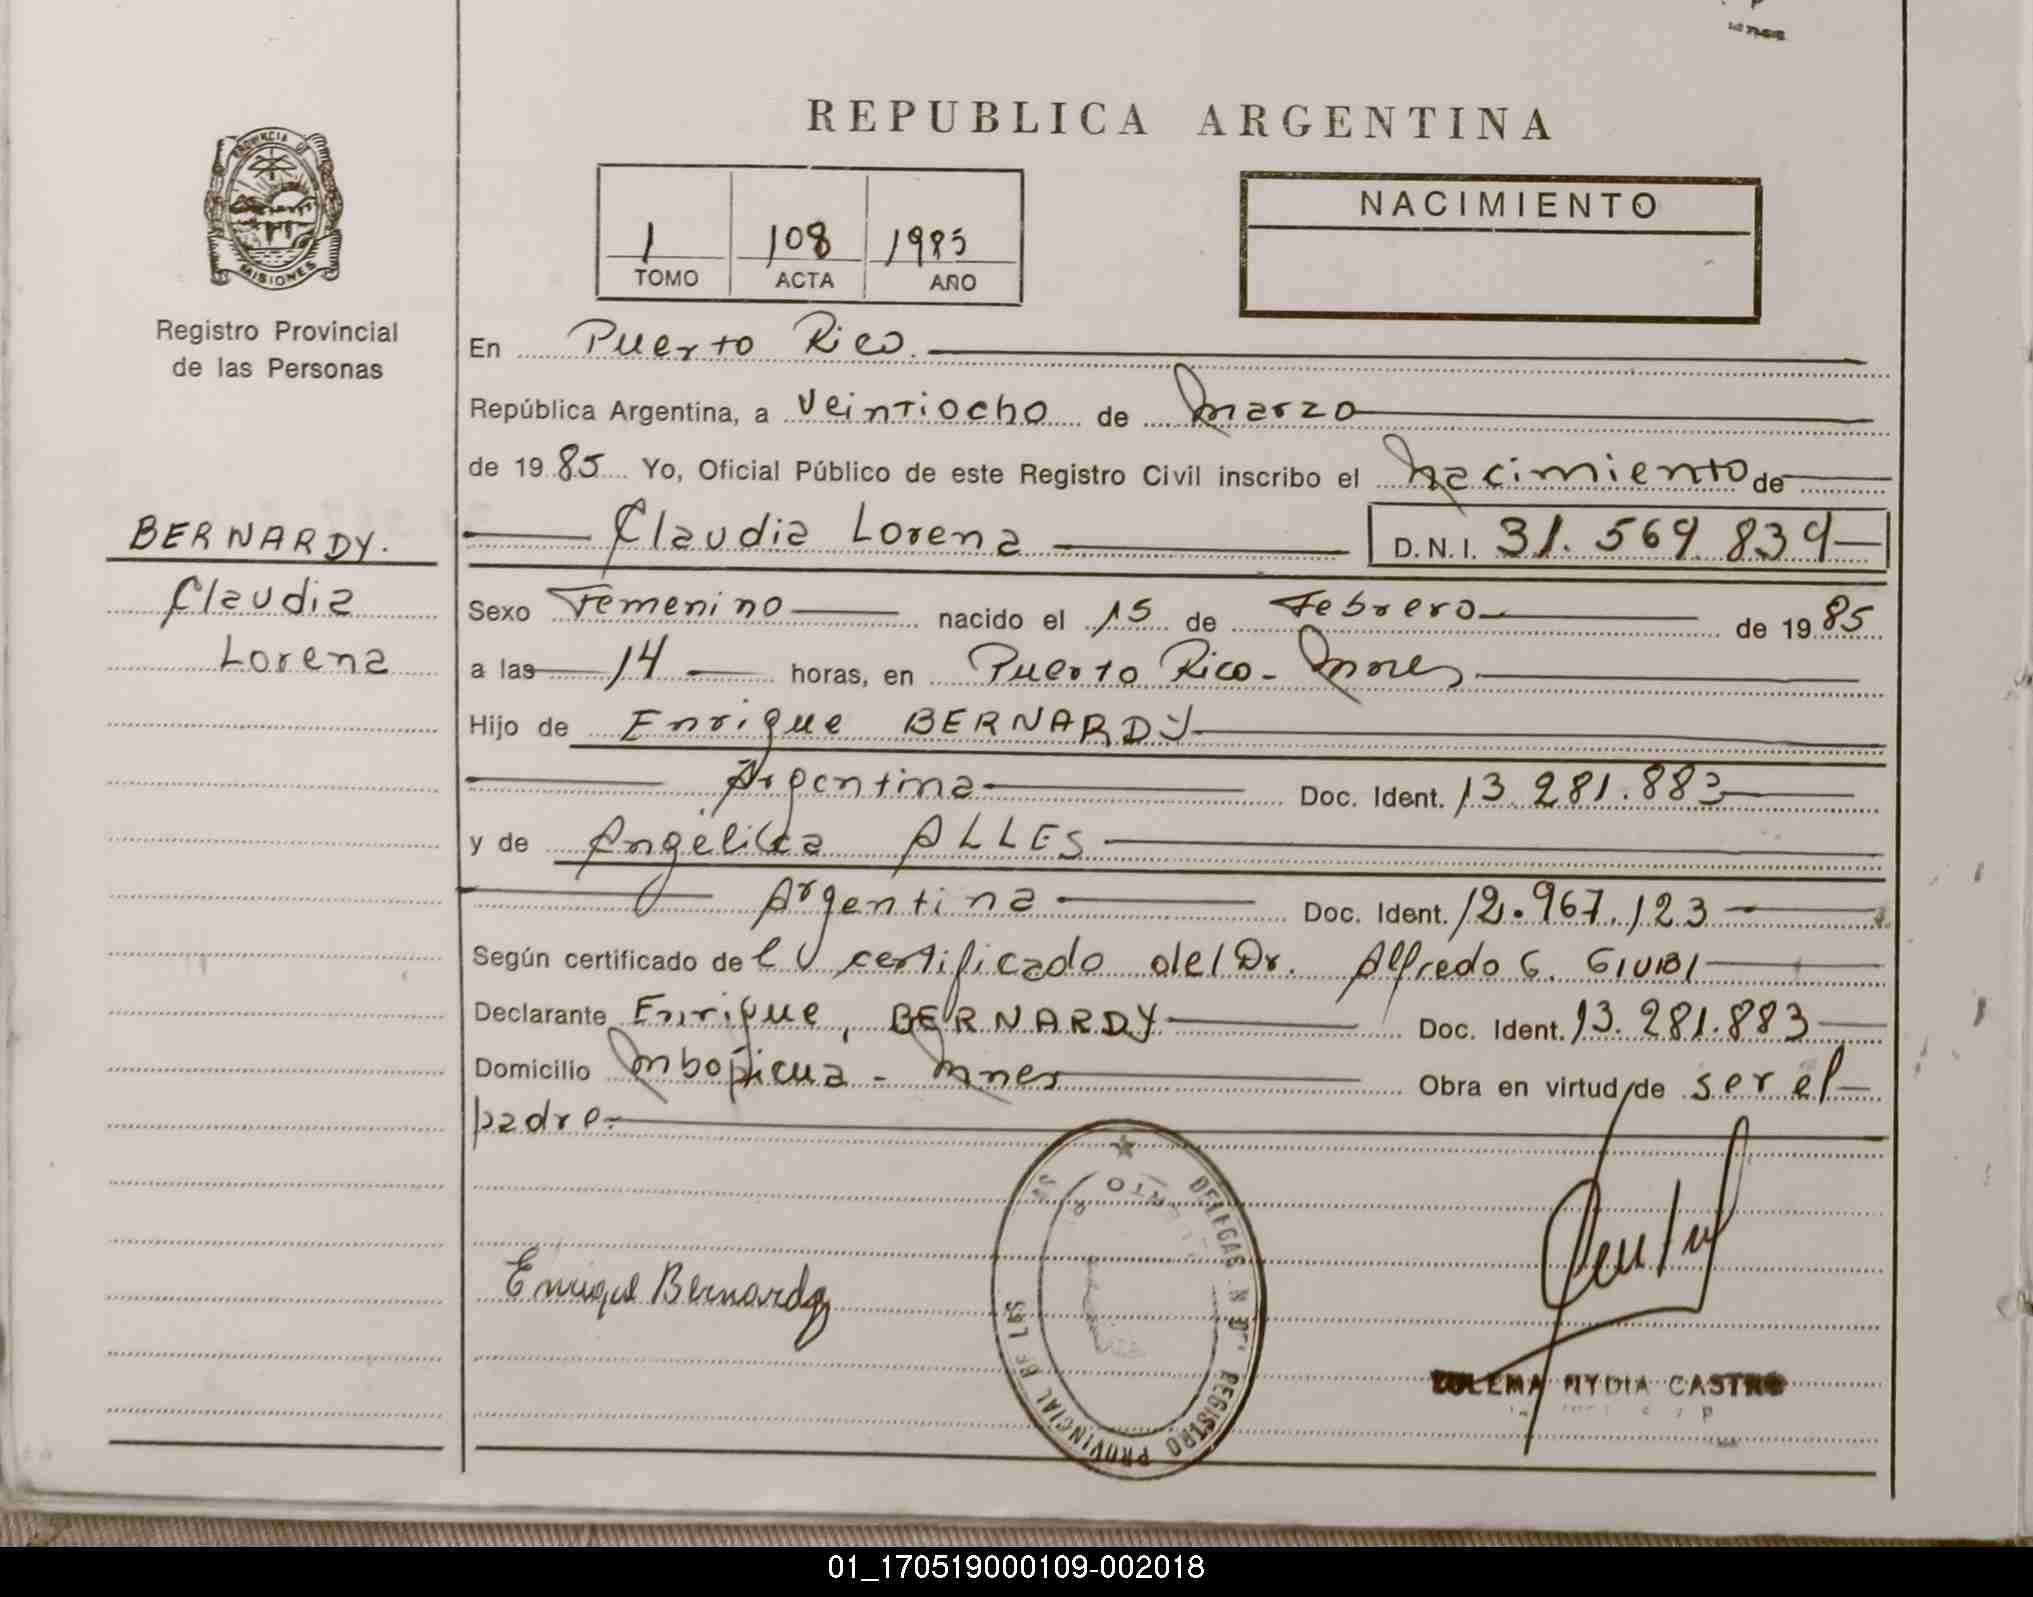 REPUBLICA ARGENTINA
PROVINCIA DE
MISIONES
Registro Provincial
de las Personas
1 108 1985
TOMO ACTA AÑO
NACIMIENTO
En Puerto Rico.
República Argentina, a veintiocho de marzo
de 19 85 Yo, Oficial Público de este Registro Civil inscribo el nacimiento de
Claudia Lorena D.N.I. 31.569.839
BERNARDY.
Claudia
Lorena
Sexo Femenino nacido el 15 de Febrero de 19 85
a las 14 horas, en Puerto Rico - Mnes
Hijo de Enrique BERNARDY
Argentina Doc. Ident. 13.281.883
y de Angélica ALLES
Argentina Doc. Ident. 12.967.123
Según certificado de certificado del Dr. Alfredo G. GIUBI
Declarante Enrique, BERNARDY Doc. Ident. 13.281.883
Domicilio Mbopicua - Mnes Obra en virtud de ser el
padre.
Enrique Bernardy
REGISTRO PROVINCIAL DE LAS
ZULEMA NYDIA CASTRO
01_170519000109-002018